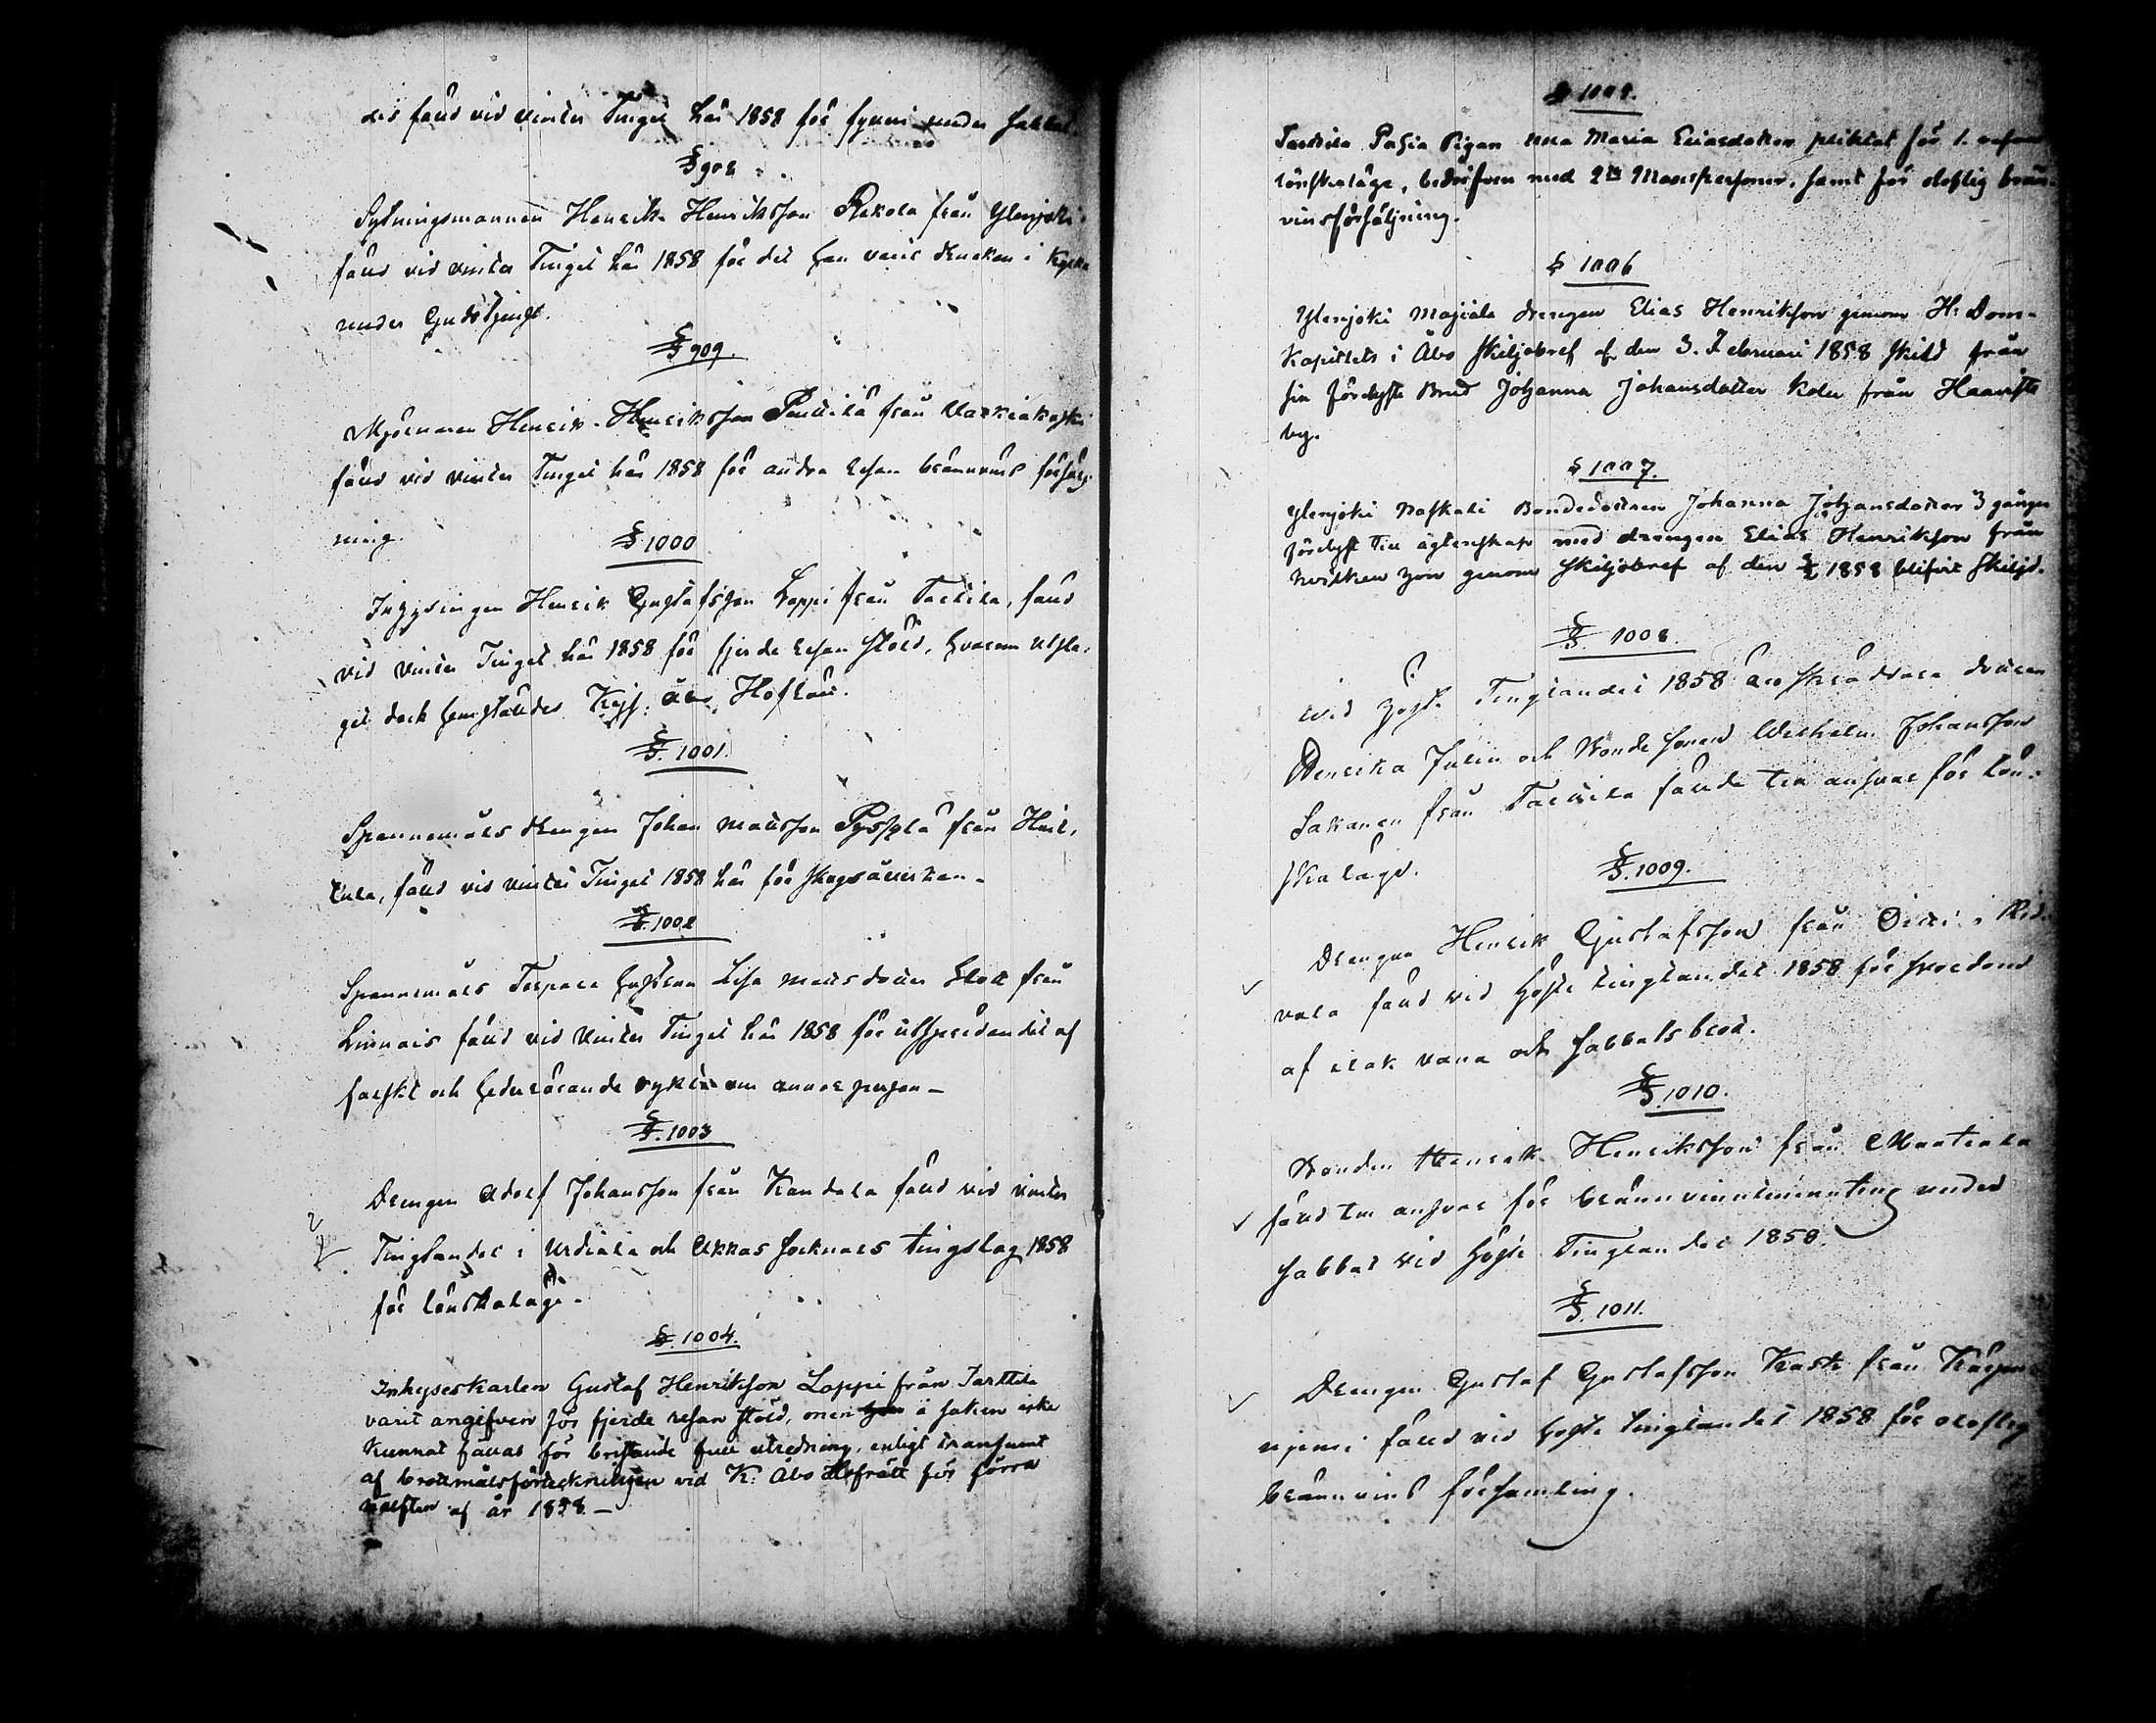 fäld vid vinter Tinget här 1858 för fylleri under sabbat
§ 908
Sytningsmannen Henrik Henriksson Rekola från Ylenjoki
fäld vid vinter Tinget här 1858 för det han varit drucken i Kyrka
under Gudstjenst.
§ 909.
Mjölnaren Henrik Henriksson Penttilä från Vaskiakoski
fäld vid vinter Tinget här 1858 för andra resan bränvins försälj-
ning.
§ 1000
Inhysingen Henrik Gustafsson Loppi från Tarttila, fäld
vid vinter Tinget här 1858 för fjerde resan stöld, hvarom utsla-
get dock hemställdes Kejs. Åbo Hofrätt.
§. 1001.
Spannemåls drengen Johan Mattsson från
tula, fäld vid vinter Tinget 1858 här för skogsåverkan.
§. 1002
Spannemåls Torpare Lisa Mattsdotter från
Linnais fäld vid vinter Tinget här 1858 för utspridandet af
falskt och hederörande rykte om annor person –
§. 1003
Drengen Adolf Johansson från Kandola fäld vid vinter
Tinglandet i Urdiala och Akkas Socknars tingslag 1858
för lönskaläge.
§. 1004.
Inhyseskarlen Gustaf Henriksson Loppi från Tarttila
varit angifven för fjerde resan stöld, men i saken icke
kunnat fällas för bristande full utredning, enligt transsumt
af brottmålsförteckningen vid K. Åbo Hofrätt för förra
hälften af år 1858. –
§ 1005.
Tarttila Pigan Anna Maria Eliasdotter pliktat för 1. resan
lönskaläge, bedrifven med 2ne Manspersoner, samt för oloflig brän-
vinsförsäljning.
§ 1006
Ylenjoki drengen Elias Henriksson genom H. Dom-
Kapitlets i Åbo skiljobref af den 3. Februari 1858 skild från
sin förelysta Brud Johanna Johansdotter från Haaviste
by.
§ 1007.
Ylenjoki Bondedottren Johanna Johansdotter 3 gånger
förelyst till ägtenskap med drengen Elias Henriksson från
hvilken hon genom skiljobref af den 3/2 1858 blifvit skiljd.
§. 1008.
Vid höste Tinglandet 1858 äro skräddare dottren
Henrika Julin och Bonde sonen Wilhelm Johansson
Sakanen från Tarttila fälde till ansvar för lön-
skaläge.
§. 1009.
Drengen Henrik Gustafsson från i Rid-
vala fäld vid höste tinglandet 1858 för svordom
af elak vana och sabbatsbrott.
§. 1010.
Bonden Henrik Henriksson från Maatiala
fäld till ansvar för under
sabbat vid höste Tinglandet 1858.
§. 1011.
Drengen Gustaf Gustafsson Kaski från
niemi fäld vid höste tinglandet 1858 för oloflig
brännvins försäljning.